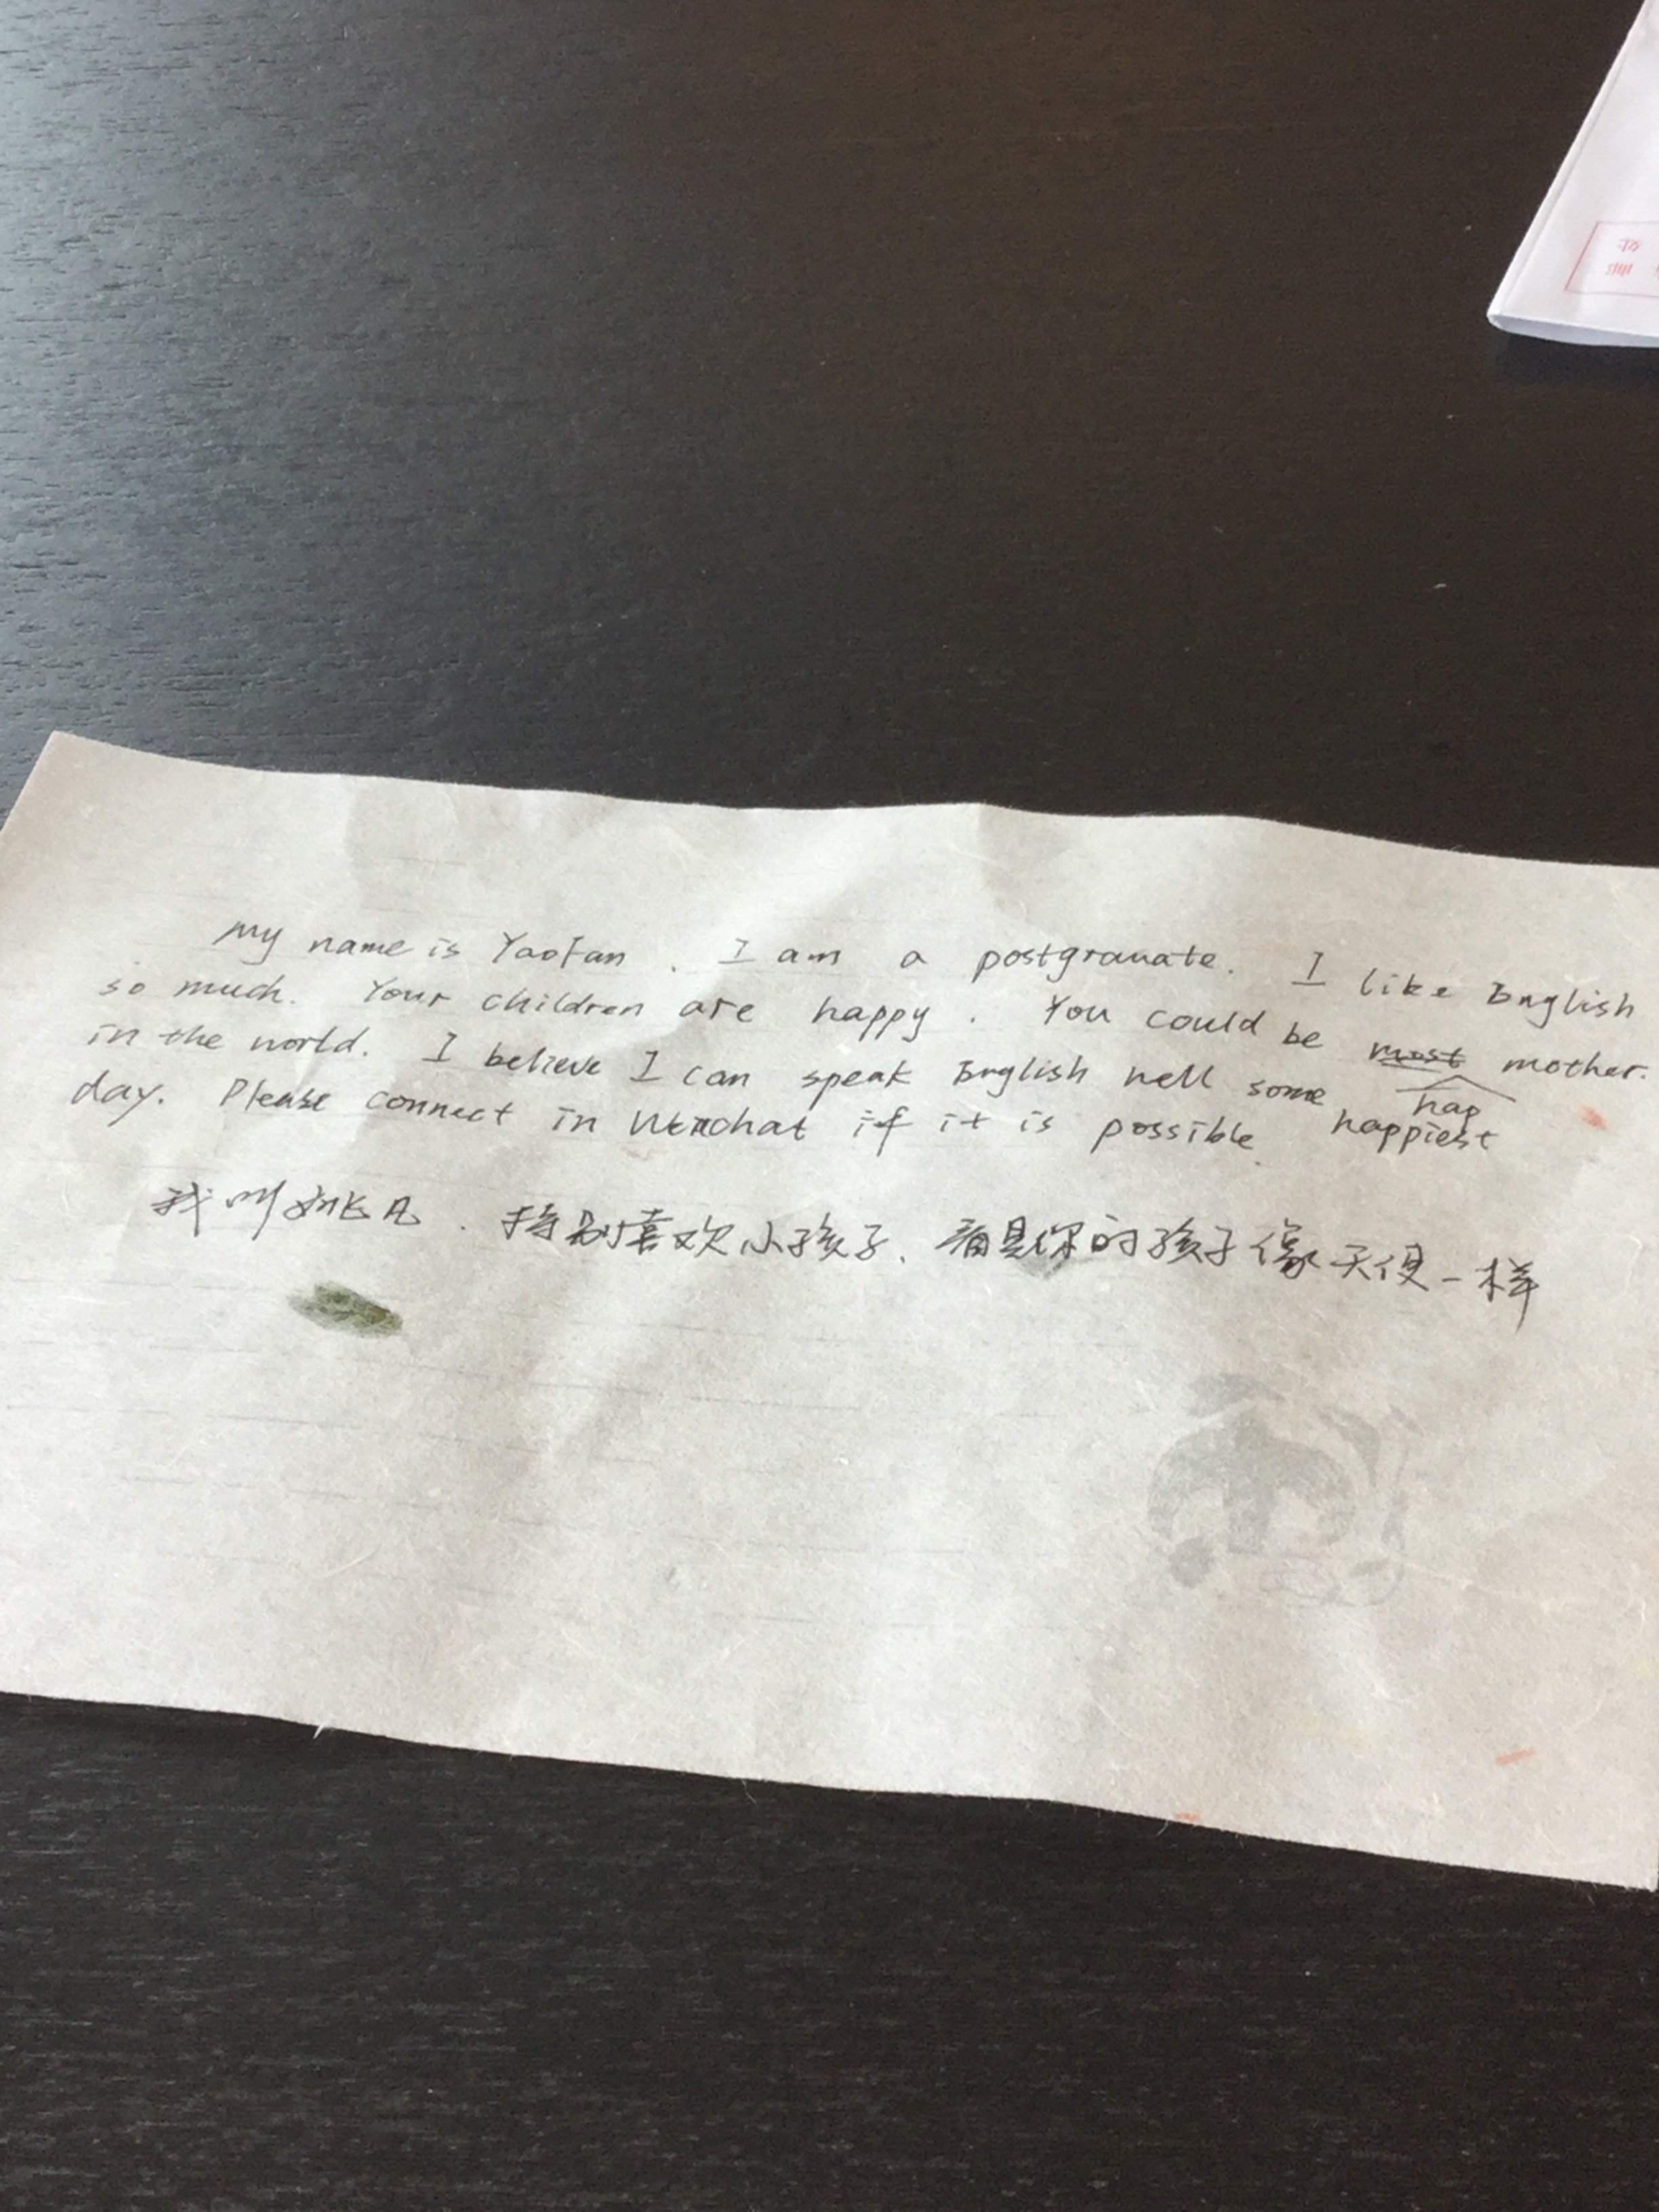 My name is YaoFan. I am a postgranate. I like English
so much. Your children are happy. You could be most mother.
hap
happiest
in the world. I believe I can speak English well some
day. Please connect in Wechat if it is possible.
我叫姚凡. 特别喜欢小孩子. 看是你的孩子像天使一样